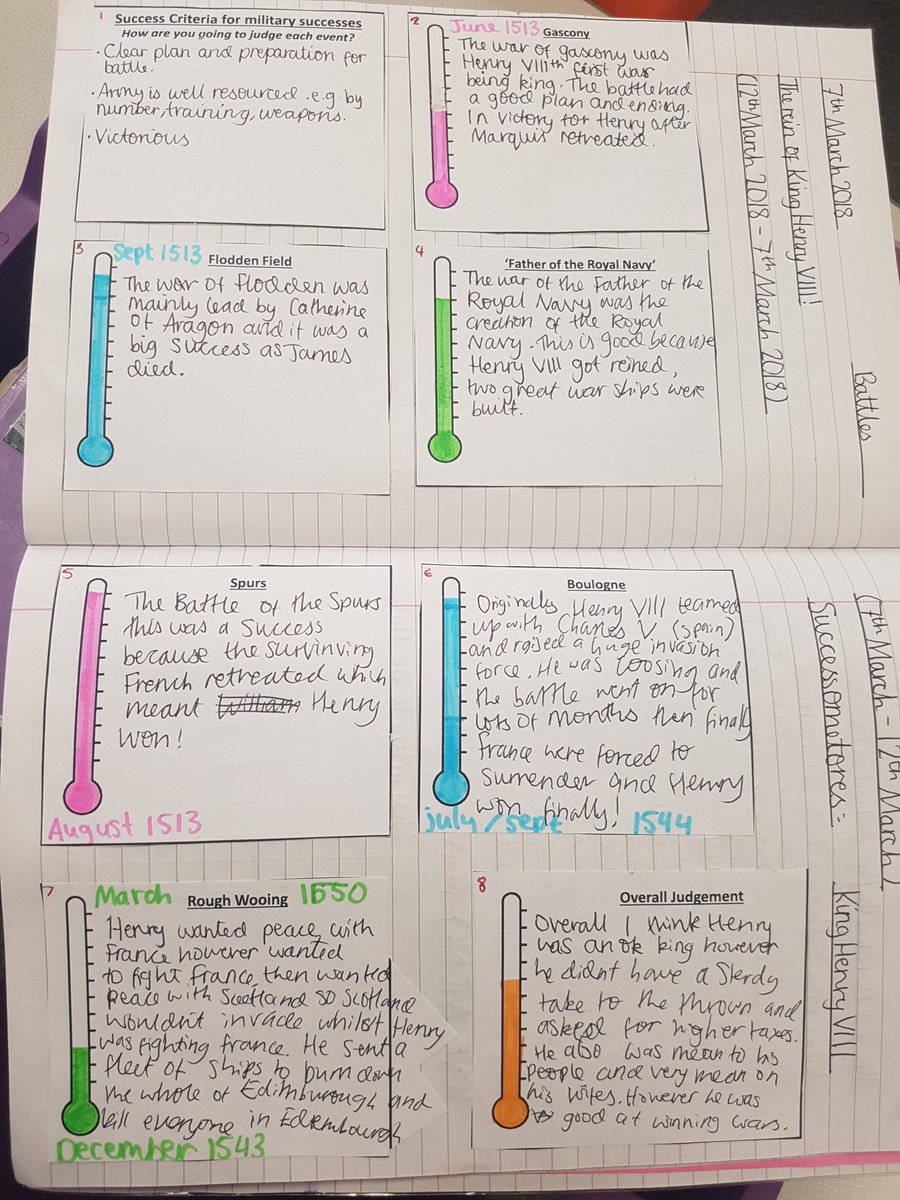 1
Success Criteria for military successes
How are you going to judge each event?
· Clear plan and preparation for
battle.
· Army is well resourced .e.g. by
number, training, weapons.
· Victorious
2
June 1513 Gascony
The war of gascony was
Henry VIIIth first was
being king. The battle had
a good plan and ending.
In victory for Henry after
Marquis retreated.
3
Sept 1513 Flodden Field
The war of Flodden was
mainly lead by Catherine
Of Aragon and it was a
big success as James
died.
4
'Father of the Royal Navy'
The war of the Father of the
Royal Navy was the
creation of the Royal
Navy. This is good because
Henry VIII got reined,
two great war ships were
built.
7th March 2018
The rein of King Henry VIII!
(12th March 2018 - 7th March 2018)
Battles
5
Spurs
The Battle of the Spurs
this was a success
because the survinving
French retreated which
meant William Henry
won!
August 1513
6
Boulogne
Originally Henry VIII teamed
up with Charles V (Spain)
and raised a huge invasion
force. He was loosing and
the battle went on for
lots of months then finally
france were forced to
surrender and Henry
won finally!
july/sept 1544
7
March Rough Wooing 1550
Henry wanted peace with
France however wanted
to fight france then wanted
peace with Scotland so Scotland
wouldn't invade whilst Henry
was fighting france. He sent a
fleet of ships to burn down
the whole of Edimburough and
kill everyone in Edembourgh
December 1543
8
Overall Judgement
Overall I think Henry
was an ok king however
he didnt have a Sterdy
take to the thrown and
asked for higher taxes.
He also was mean to his
people and very mean on
his wifes. However he was
good at winning wars.
(7th March - 12th March)
Successometores:
King Henry VIII